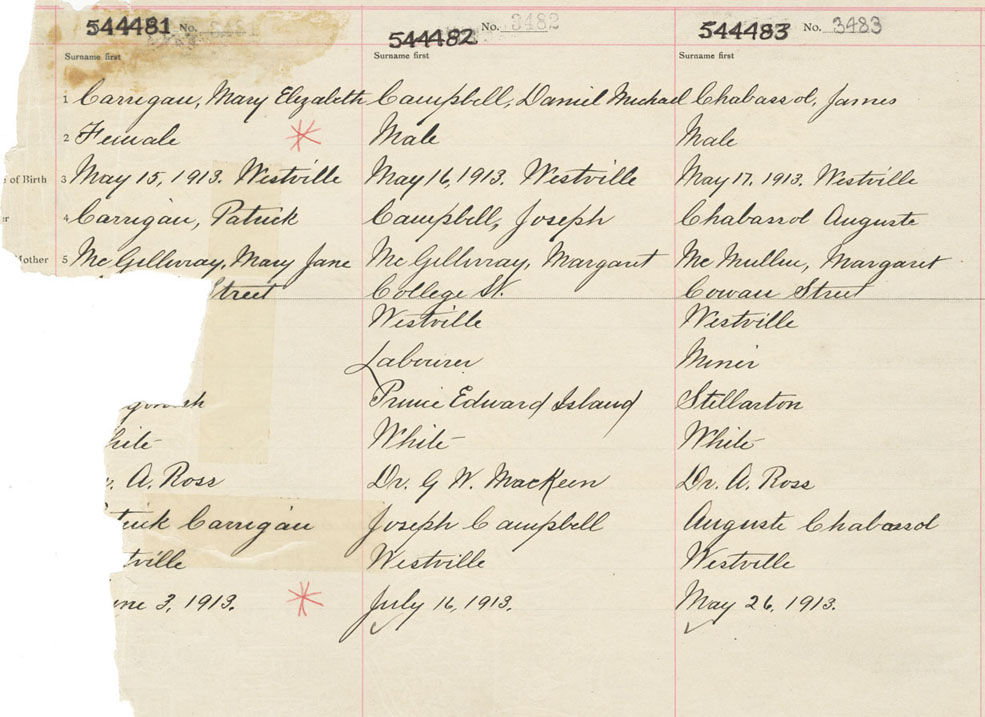 544481 No. 3481
Surname first
1 Carrigan, Mary Elizabeth
2 Female
of Birth 3 May 15, 1913. Westville
4 Carrigan, Patrick
Mother 5 McGillivray, Mary Jane
Street
gonish
hite
. A. Ross
trick Carrigan
tville
une 3, 1913.
544482 No. 3482
Surname first
Campbell, Daniel Michael
Male
May 16, 1913. Westville
Campbell, Joseph
McGillivray, Margaret
College St.
Westville
Labourer
Prince Edward Island
White
Dr. G W. MacKeen
Joseph Campbell
Westville
July 16, 1913.
544483 No. 3483
Surname first
Chabassol, James
Male
May 17, 1913. Westville
Chabassol Auguste
McMullin, Margaret
Cowan Street
Westville
Miner
Stellarton
White
Dr. A. Ross
Auguste Chabassol
Westville
May 26, 1913.